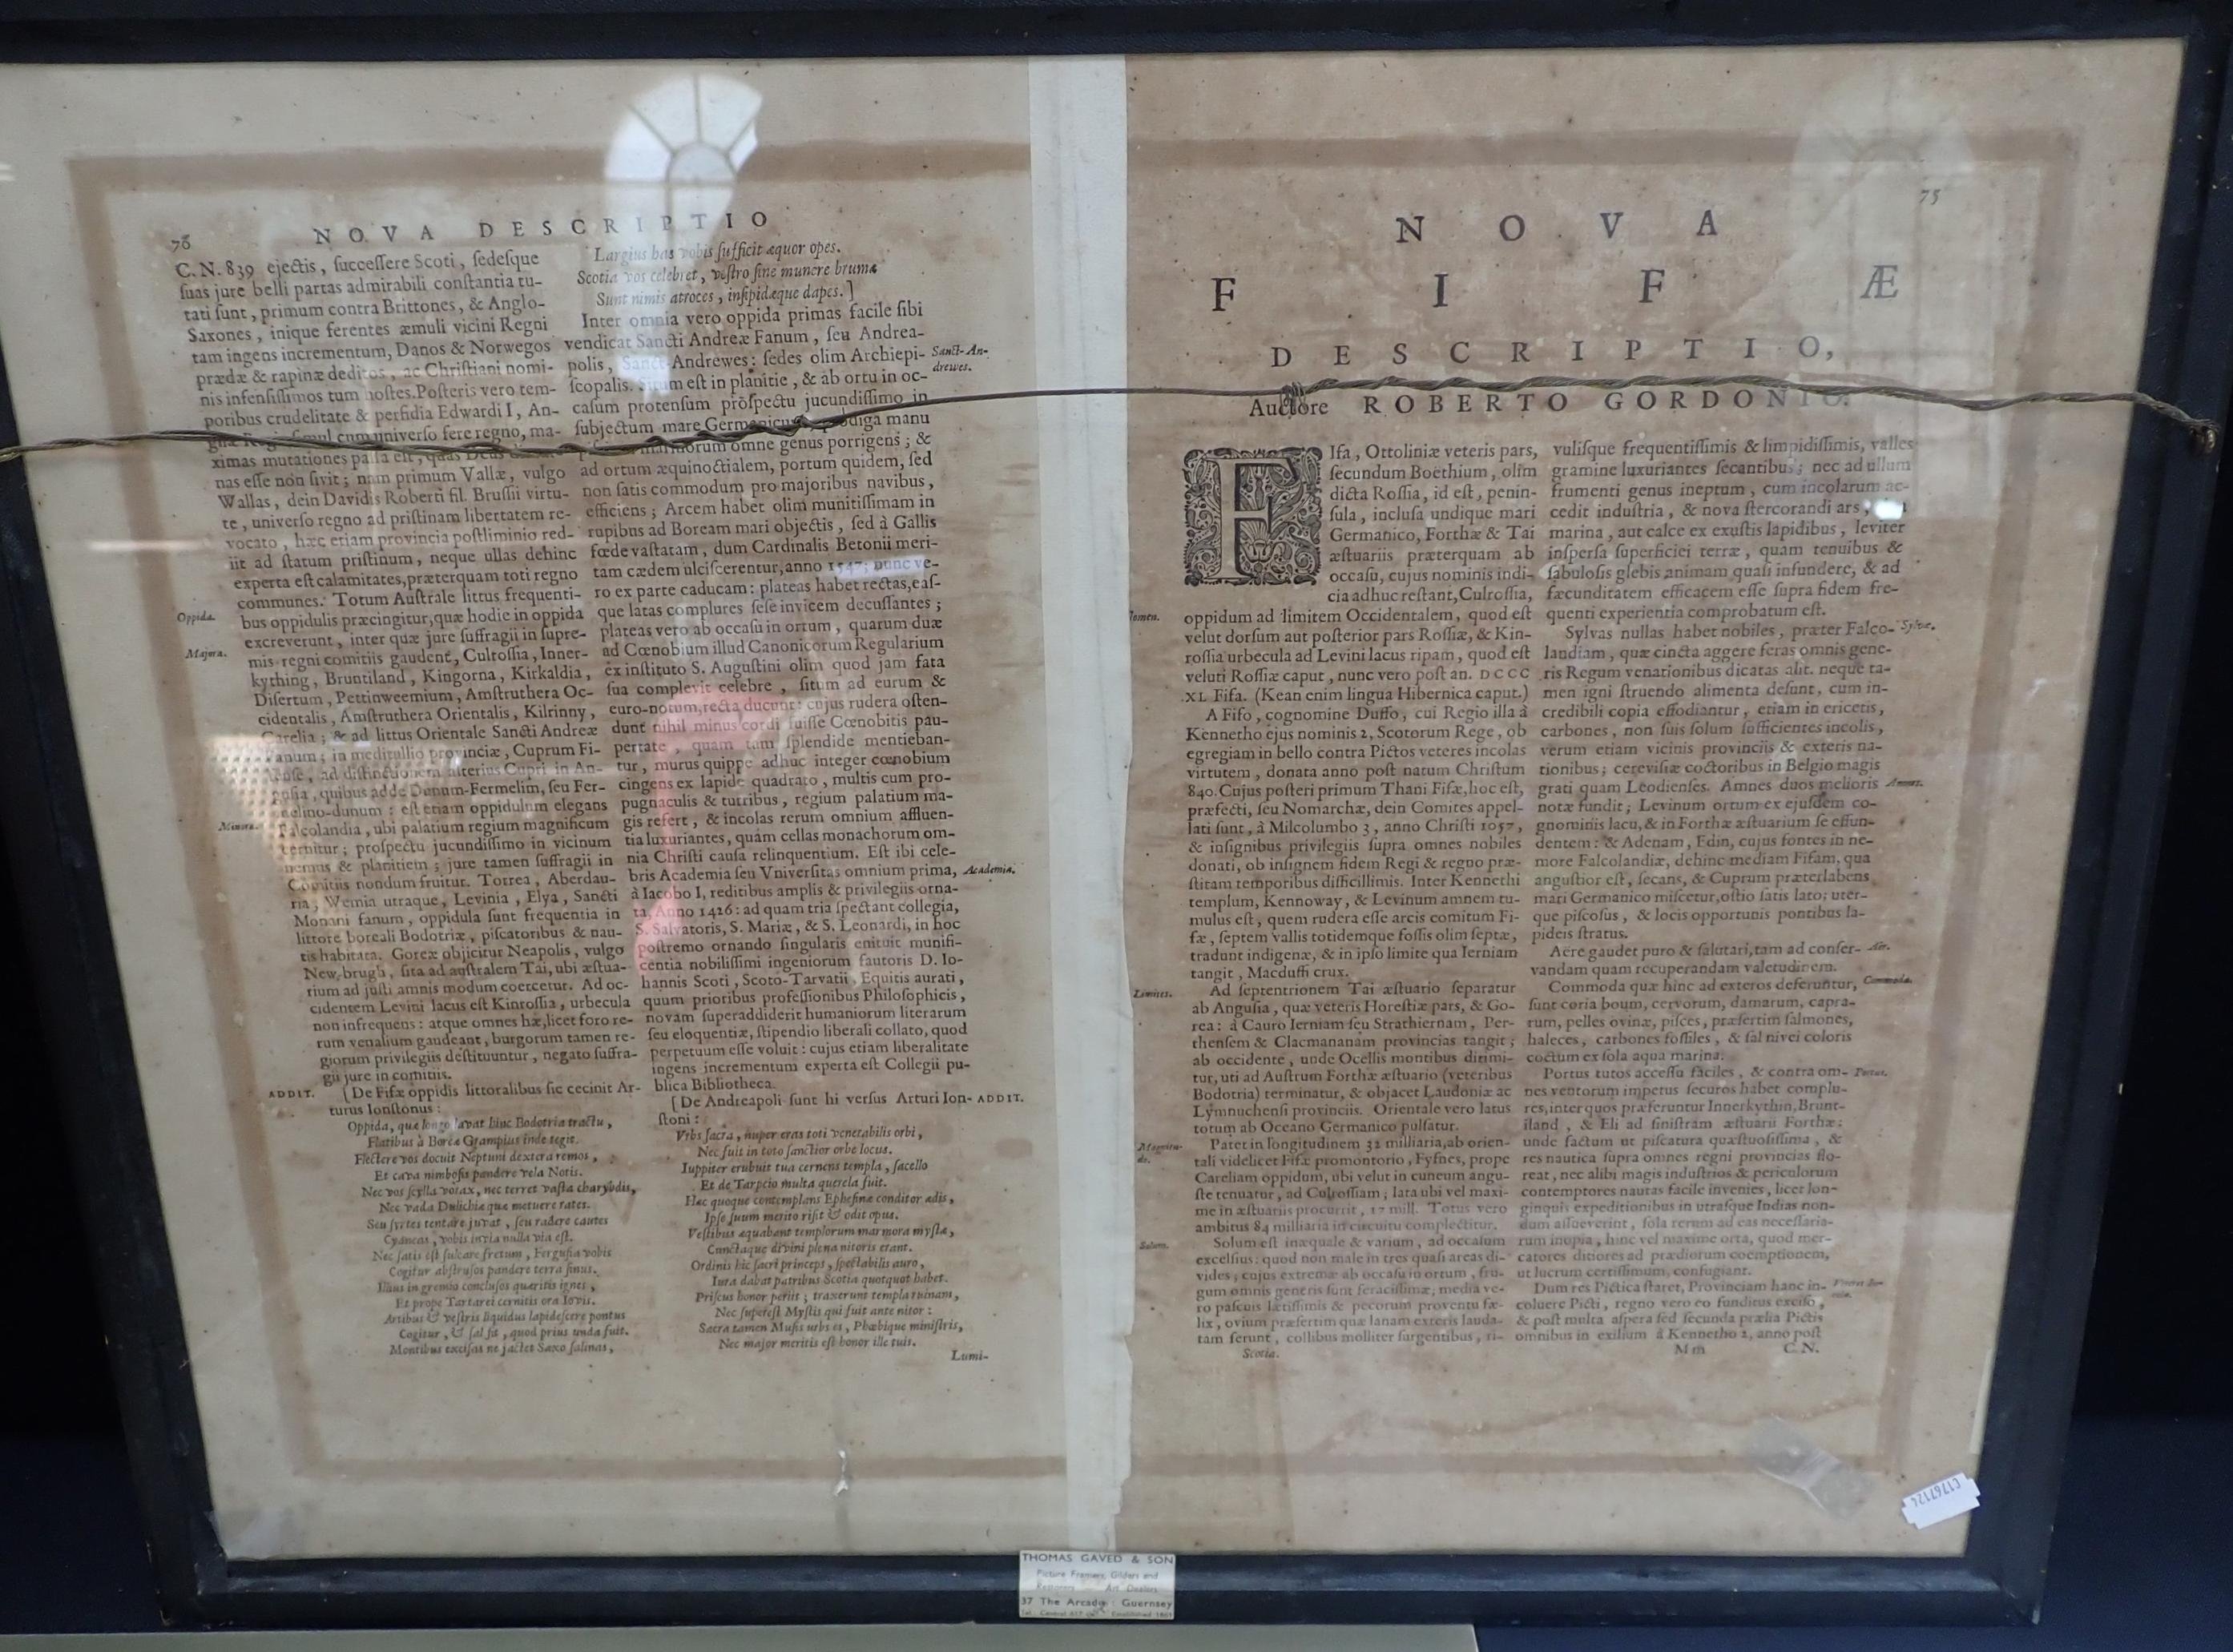 76
NOVA DESCRIPTIO
C. N. 839 ejectis, ſucceſſere Scoti, ſedeſque
ſuas jure belli partas admirabili conſtantia tu-
tati ſunt, primum contra Brittones, & Anglo-
Saxones, inique ferentes æmuli vicini Regni
tam ingens incrementum, Danos & Norwegos
prædæ & rapinæ deditos, ac Chriſtiani nomi-
nis infenſiſſimos tum hoſtes. Poſteris vero tem-
poribus crudelitate & perfidia Edwardi I, An-
gliæ Regis ſimul cum univerſo fere regno, ma-
ximas mutationes paſſa eſt, quas Deus
nas eſſe non ſivit; nam primum Vallæ, vulgo
Wallas, dein Davidis Roberti fil. Bruſſii virtu-
te, univerſo regno ad priſtinam libertatem re-
vocato, hæc etiam provincia poſtliminio red-
iit ad ſtatum priſtinum, neque ullas dehinc
experta eſt calamitates, præterquam toti regno
communes. Totum Auſtrale littus frequenti-
Oppida.
bus oppidulis præcingitur, quæ hodie in oppida
excreverunt, inter quæ jure ſuffragii in ſupre-
Majora.
mis regni comitiis gaudent, Culroſſia, Inner-
kything, Bruntiland, Kingorna, Kirkaldia,
Diſertum, Pettinweemium, Amſtruthera Oc-
cidentalis, Amſtruthera Orientalis, Kilrinny,
Carelia; & ad littus Orientale Sancti Andreæ
Fanum; in meditullio provinciæ, Cuprum Fi-
ad diſtinctionem alterius Cupri in An-
guſia, quibus adde Dunum-Fermelim, ſeu Fer-
melino-dunum: eſt etiam oppidulum elegans
Minora.
Falcolandia, ubi palatium regium magnificum
cernitur; proſpectu jucundiſſimo in vicinum
nemus & planitiem; jure tamen ſuffragii in
Comitiis nondum fruitur. Torrea, Aberdau-
ria, Wemia utraque, Levinia, Elya, Sancti
Monani fanum, oppidula ſunt frequentia in
littore boreali Bodotriæ, piſcatoribus & nau-
tis habitata. Goreæ objicitur Neapolis, vulgo
New-brugh, ſita ad auſtralem Tai, ubi æſtua-
rium ad juſti amnis modum coercetur. Ad oc-
cidentem Levini lacus eſt Kinroſſia, urbecula
non infrequens: atque omnes hæ, licet foro re-
rum venalium gaudeant, burgorum tamen re-
giorum privilegiis deſtituuntur, negato ſuffra-
gii jure in comitiis.
ADDIT. [De Fifæ oppidis littoralibus ſic cecinit Ar-
turus Ionſtonus:
Oppida, quæ longo lavat hinc Bodotria tractu,
Flatibus à Boreæ Grampius inde tegit.
Flectere vos docuit Neptuni dextera remos,
Et cava nimboſis pandere vela Notis.
Nec vos ſcylla vorax, nec terret vaſta charybdis,
Nec vada Dulichiæ quæ metuere rates.
Seu ſyrtes tentare juvat, ſeu radere cautes
Cyaneas, vobis invia nulla via eſt.
Nec ſatis eſt ſulcare fretum, Ferguſia vobis
Cogitur abſtruſos pandere terra ſinus.
Illius in gremio concluſos quæritis ignes,
Et prope Tartarei cernitis ora Iovis.
Artibus & veſtris liquidus lapideſcere pontus
Cogitur, & ſal fit, quod prius unda fuit.
Montibus exciſas ne jactet Saxo ſalinas,
Largius has vobis ſufficit æquor opes.
Scotia vos celebret, veſtro ſine munere brumæ
Sunt nimis atroces, inſipidæque dapes.]
Inter omnia vero oppida primas facile ſibi
vendicat Sancti Andreæ Fanum, ſeu Andrea-
polis, Sanct-Andrewes: ſedes olim Archiepi-
Sanct-An-
drewes.
ſcopalis. Situm eſt in planitie, & ab ortu in oc-
caſum protenſum proſpectu jucundiſſimo in
ſubjectum mare Germanicum, prodiga manu
omne genus porrigens; &
ad ortum æquinoctialem, portum quidem, ſed
non ſatis commodum pro majoribus navibus,
efficiens; Arcem habet olim munitiſſimam in
rupibus ad Boream mari objectis, ſed à Gallis
fœde vaſtatam, dum Cardinalis Betonii meri-
tam cædem ulciſcerentur, anno 1547; nunc ve-
ro ex parte caducam: plateas habet rectas, eaſ-
que latas complures ſeſe invicem decuſſantes;
plateas vero ab occaſu in ortum, quarum duæ
ad Cœnobium illud Canonicorum Regularium
ex inſtituto S. Auguſtini olim quod jam fata
ſua complevit celebre, ſitum ad eurum &
euro-notum, recta ducunt: cujus rudera oſten-
dunt nihil minus cordi fuiſſe Cœnobitis pau-
pertate, quam tam ſplendide mentieban-
tur, murus quippe adhuc integer cœnobium
cingens ex lapide quadrato, multis cum pro-
pugnaculis & turribus, regium palatium ma-
gis refert, & incolas rerum omnium affluen-
tia luxuriantes, quàm cellas monachorum om-
nia Chriſti cauſa relinquentium. Eſt ibi cele-
bris Academia ſeu Vniverſitas omnium prima,
Academia.
à Iacobo I, reditibus amplis & privilegiis orna-
ta, Anno 1426: ad quam tria ſpectant collegia,
S. Salvatoris, S. Mariæ, & S. Leonardi, in hoc
poſtremo ornando ſingularis enituit munifi-
centia nobiliſſimi ingeniorum fautoris D. Io-
hannis Scoti, Scoto-Tarvatii, Equitis aurati,
quum prioribus profeſſionibus Philoſophicis,
novam ſuperaddiderit humaniorum literarum
ſeu eloquentiæ, ſtipendio liberali collato, quod
perpetuum eſſe voluit: cujus etiam liberalitate
ingens incrementum experta eſt Collegii pu-
blica Bibliotheca.
[De Andreapoli ſunt hi verſus Arturi Ion- ADDIT.
ſtoni:
Vrbs ſacra, nuper eras toti venerabilis orbi,
Nec fuit in toto ſanctior orbe locus.
Iuppiter erubuit tua cernens templa, ſacello
Et de Tarpeio multa querela fuit.
Hæc quoque contemplans Epheſinæ conditor ædis,
Ipſe ſuum merito riſit & odit opus.
Veſtibus æquabant templorum marmora myſtæ,
Cunctaque divini plena nitoris erant.
Ordinis hic ſacri princeps, ſpectabilis auro,
Iura dabat patribus Scotia quotquot habet.
Priſcus honor periit; traxerunt templa ruinam,
Nec ſupereſt Myſtis qui fuit ante nitor:
Sacra tamen Muſis urbs es, Phœbique miniſtris,
Nec major meritis eſt honor ille tuis.
Lumi-
75
NOVA
FIFÆ
DESCRIPTIO,
Auctore ROBERTO GORDONIO.
FIfa, Ottoliniæ veteris pars,
ſecundum Boëthium, olim
dicta Roſſia, id eſt, penin-
ſula, incluſa undique mari
Germanico, Forthæ & Tai
æſtuariis præterquam ab
occaſu, cujus nominis indi-
cia adhuc reſtant, Culroſſia,
Nomen.
oppidum ad limitem Occidentalem, quod eſt
velut dorſum aut poſterior pars Roſſiæ, & Kin-
roſſia urbecula ad Levini lacus ripam, quod eſt
veluti Roſſiæ caput, nunc vero poſt an. DCCC
XL Fifa. (Kean enim lingua Hibernica caput.)
A Fifo, cognomine Duffo, cui Regio illa à
Kennetho ejus nominis 2, Scotorum Rege, ob
egregiam in bello contra Pictos veteres incolas
virtutem, donata anno poſt natum Chriſtum
840. Cujus poſteri primum Thani Fifæ, hoc eſt,
præfecti, ſeu Nomarchæ, dein Comites appel-
lati ſunt, à Milcolumbo 3, anno Chriſti 1057,
& inſignibus privilegiis ſupra omnes nobiles
donati, ob inſignem fidem Regi & regno præ-
ſtitam temporibus difficillimis. Inter Kennethi
templum, Kennoway, & Levinum amnem tu-
mulus eſt, quem rudera eſſe arcis comitum Fi-
fæ, ſeptem vallis totidemque foſſis olim ſeptæ,
tradunt indigenæ, & in ipſo limite qua Ierniam
tangit, Macduffi crux.
Limites.
Ad ſeptentrionem Tai æſtuario ſeparatur
ab Anguſia, quæ veteris Horeſtiæ pars, & Go-
rea: à Cauro Ierniam ſeu Strathiernam, Per-
thenſem & Clacmananam provincias tangit;
ab occidente, unde Ocellis montibus dirimi-
tur, uti ad Auſtrum Forthæ æſtuario (veteribus
Bodotria) terminatur, & objacet Laudoniæ ac
Lymnuchenſi provinciis. Orientale vero latus
totum ab Oceano Germanico pulſatur.
Magnitu-
do.
Patet in longitudinem 32 milliaria, ab orien-
tali videlicet Fifæ promontorio, Fyfnes, prope
Careliam oppidum, ubi velut in cuneum angu-
ſte tenuatur, ad Culroſſiam; lata ubi vel maxi-
me in æſtuariis procurrit, 17 mill. Totus vero
ambitus 84 milliaria in circuitu complectitur.
Solum.
Solum eſt inæquale & varium, ad occaſum
excelſius: quod non male in tres quaſi areas di-
vides; cujus extremæ ab occaſu in ortum, fru-
gum omnis generis ſunt feraciſſimæ; media ve-
ro paſcuis lætiſſimis & pecorum proventu fæ-
lix, ovium præſertim quæ lanam exteris lauda-
tam ferunt, collibus molliter ſurgentibus, ri-
Scotia.
vuliſque frequentiſſimis & limpidiſſimis, valles
gramine luxuriantes ſecantibus; nec ad ullum
frumenti genus ineptum, cum incolarum ac-
cedit induſtria, & nova ſtercorandi ars,
marina, aut calce ex exuſtis lapidibus, leviter
inſperſa ſuperficiei terræ, quam tenuibus &
ſabuloſis glebis animam quaſi infundere, & ad
fæcunditatem efficacem eſſe ſupra fidem fre-
quenti experientia comprobatum eſt.
Sylvas nullas habet nobiles, præter Falco-
Sylvæ.
landiam, quæ cincta aggere feras omnis gene-
ris Regum venationibus dicatas alit. neque ta-
men igni ſtruendo alimenta deſunt, cum in-
credibili copia effodiantur, etiam in ericetis,
carbones, non ſuis ſolum ſufficientes incolis,
verum etiam vicinis provinciis & exteris na-
tionibus; cereviſiæ coctoribus in Belgio magis
grati quam Leodienſes. Amnes duos melioris
Amnes.
notæ fundit; Levinum ortum ex ejuſdem co-
gnominis lacu, & in Forthæ æſtuarium ſe effun-
dentem: & Adenam, Edin, cujus fontes in ne-
more Falcolandiæ, dehinc mediam Fifam, qua
anguſtior eſt, ſecans, & Cuprum præterlabens
mari Germanico miſcetur, oſtio ſatis lato; uter-
que piſcoſus, & locis opportunis pontibus la-
pideis ſtratus.
Aëre gaudet puro & ſalutari, tam ad conſer-
Aër.
vandam quam recuperandam valetudinem.
Commoda quæ hinc ad exteros deferuntur,
Commoda.
ſunt coria boum, cervorum, damarum, capra-
rum, pelles ovinæ, piſces, præſertim ſalmones,
haleces, carbones foſſiles, & ſal nivei coloris
coctum ex ſola aqua marina.
Portus tutos acceſſu faciles, & contra om-
Portus.
nes ventorum impetus ſecuros habet complu-
res, inter quos præferuntur Innerkythin, Brunt-
iland, & Eli ad ſiniſtram æſtuarii Forthæ:
unde factum ut piſcatura quæſtuoſiſſima, &
res nautica ſupra omnes regni provincias flo-
reat, nec alibi magis induſtrios & periculorum
contemptores nautas facile invenies, licet lon-
ginquis expeditionibus in utraſque Indias non-
dum aſſueverint, ſola rerum ad eas neceſſaria-
rum inopia, hinc vel maxime orta, quod mer-
catores ditiores ad prædiorum coemptionem,
ut lucrum certiſſimum, confugiant.
Dum res Pictica ſtaret, Provinciam hanc in-
coluere Picti, regno vero eo funditus exciſo,
& poſt multa aſpera ſed ſecunda prælia Pictis
omnibus in exilium à Kennetho 2, anno poſt
Mm
C. N.
C1767124
THOMAS GAVED & SON
Picture Framers, Gilders and
Restorers Art Dealers
37 The Arcade : Guernsey